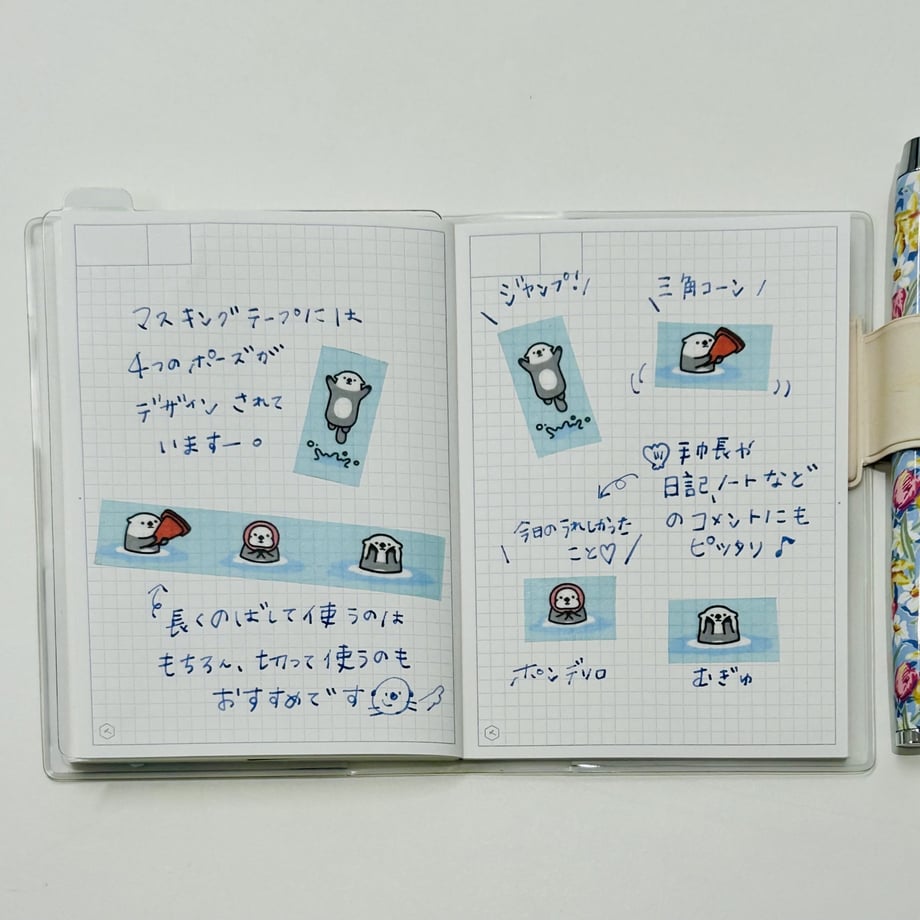 マスキングテープには
4つのポーズが
デザインされて
いますー。
長くのばして使うのは
もちろん、切って使うのも
おすすめです
ジャンプ!
三角コーン
手帳や
日記、ノートなど
のコメントにも
ピッタリ♪
今日のうれしかった
こと♡
ポンデリロ
むぎゅ